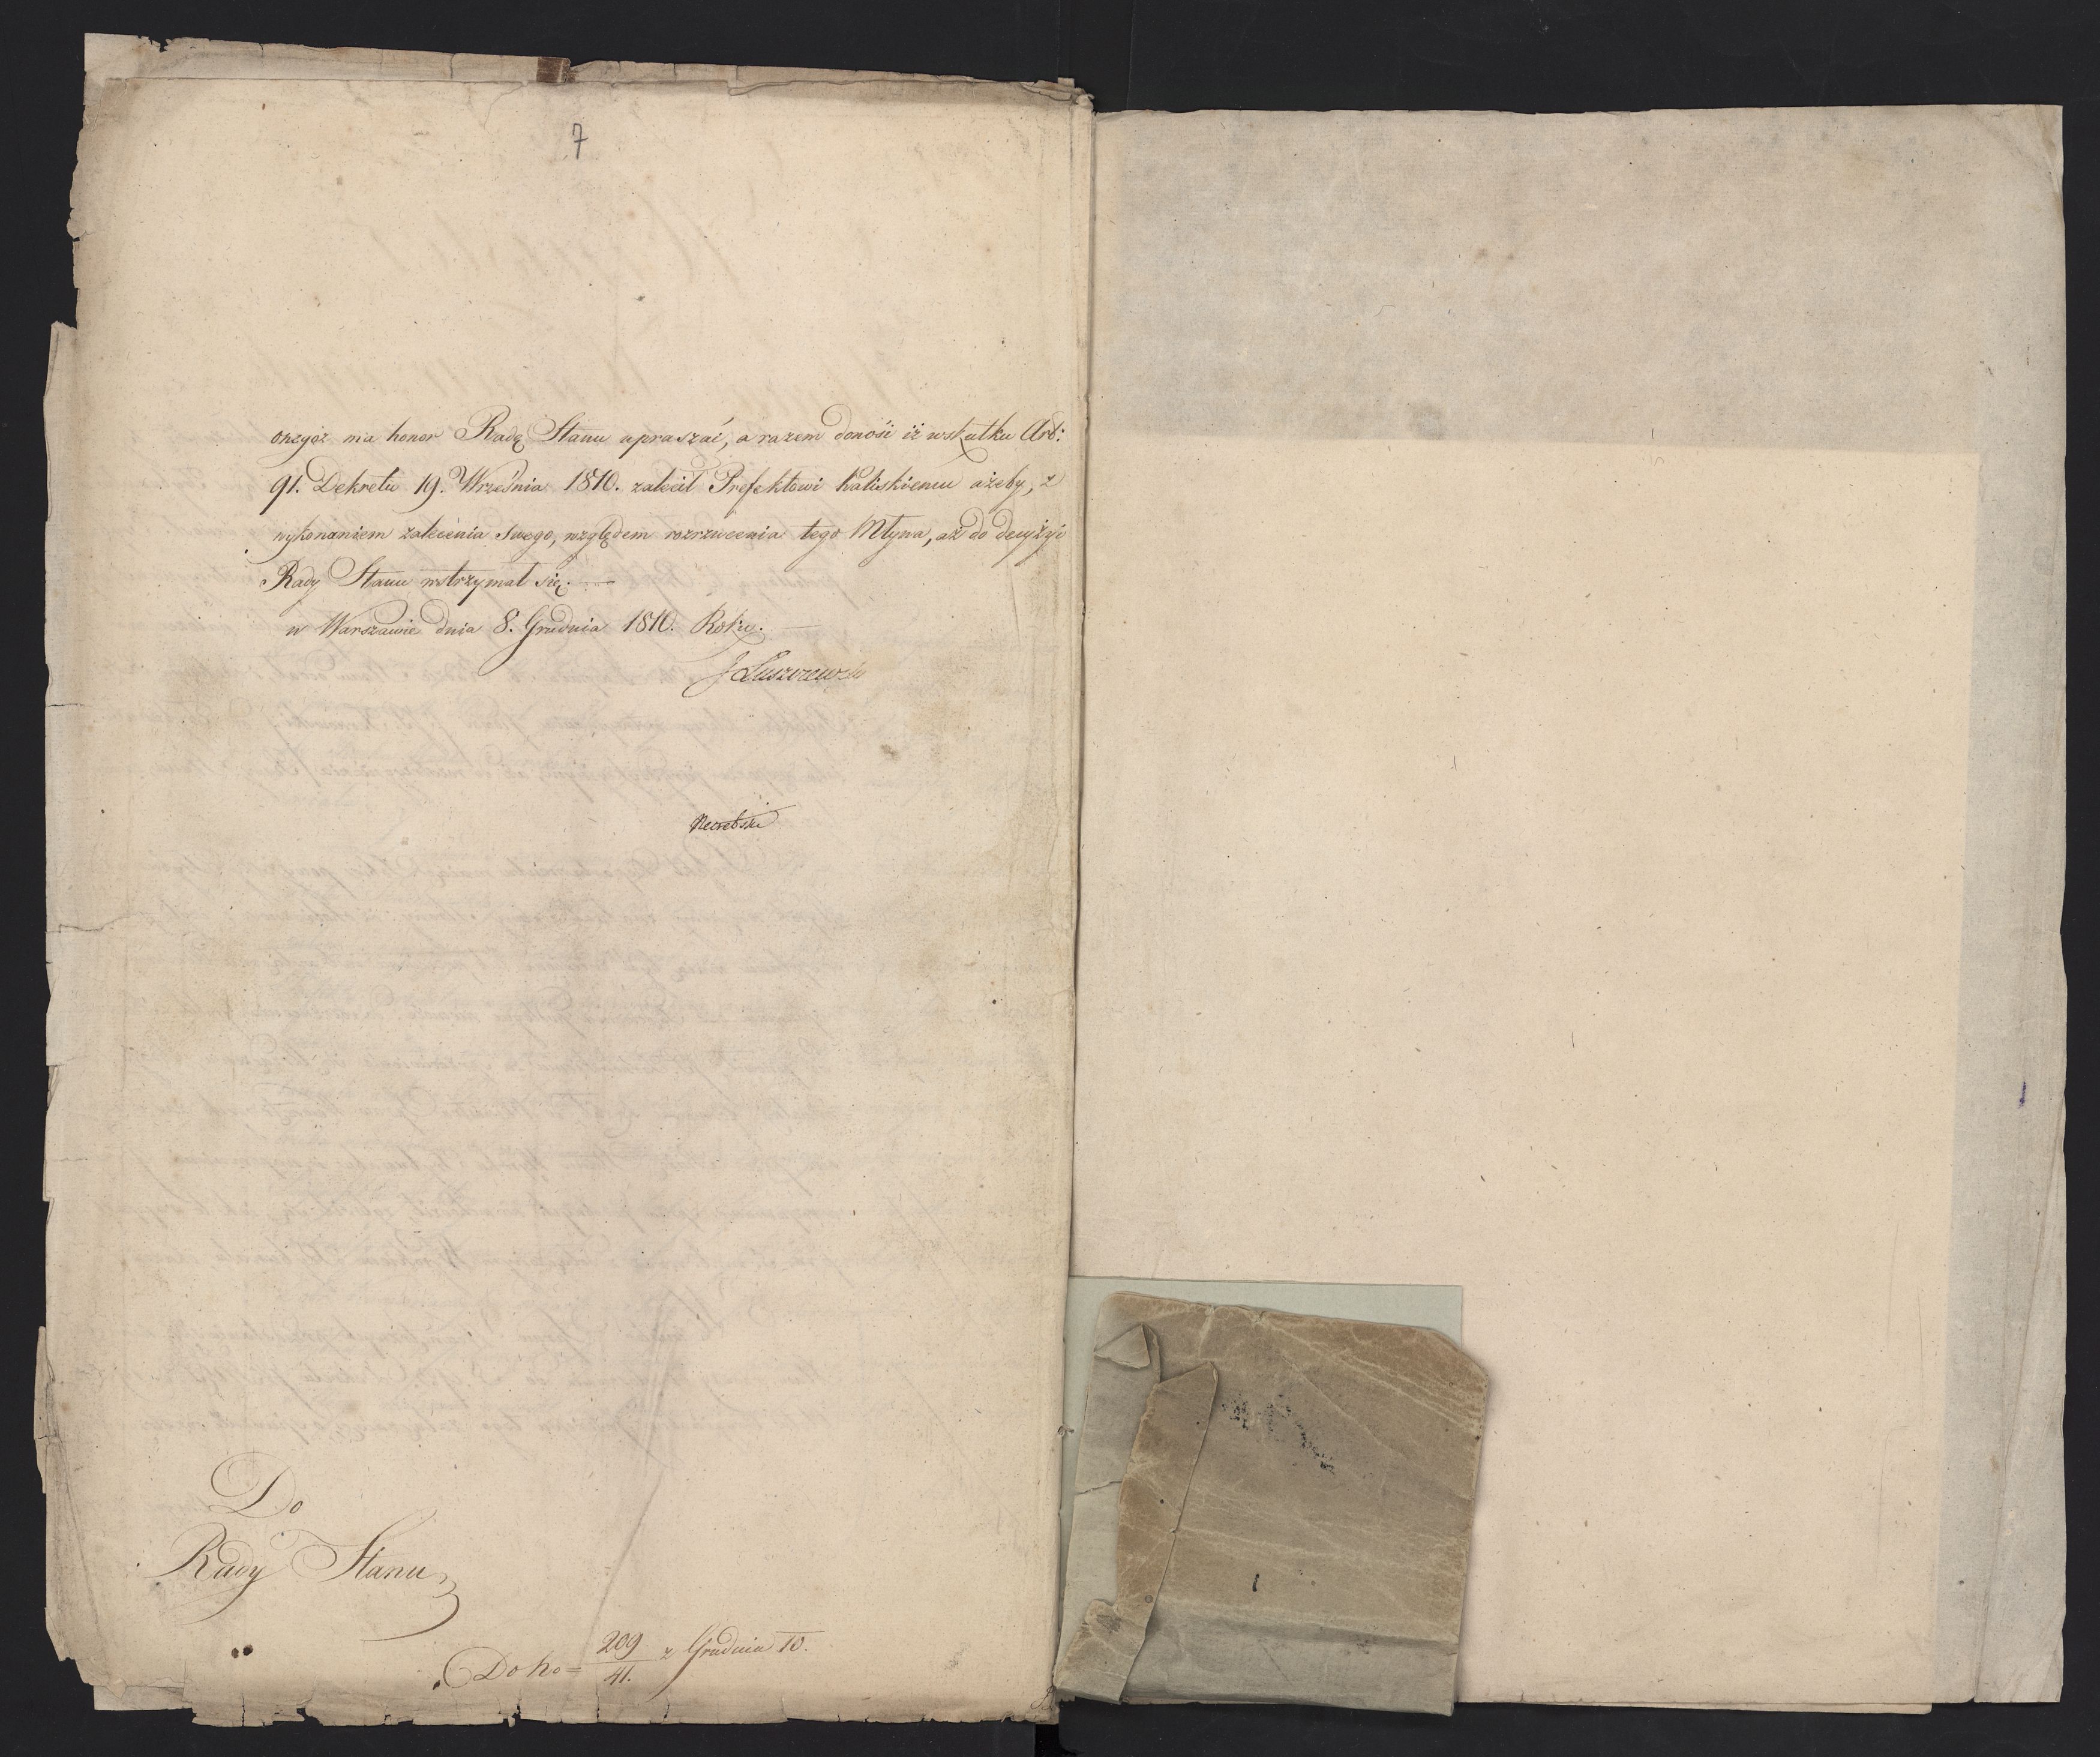 7
onegoż ma honor Radę Stanu upraszać, a razem donośi iż wskutku Art:
91. Dekretu 19. Września 1810. zalecił Prefektowi Kaliskiemu ażeby, z
wykonaniem zalecenia swego, względem rozrzucenia tego Młyna, aż do decyżyi
Rady Stanu wstrzymał się.
w Warszawie dnia 8. Grudnia 1810. Roku.
J Łuszczewski
Do
Rady Stanu
Do No = 209/41. z Grudnia 10.